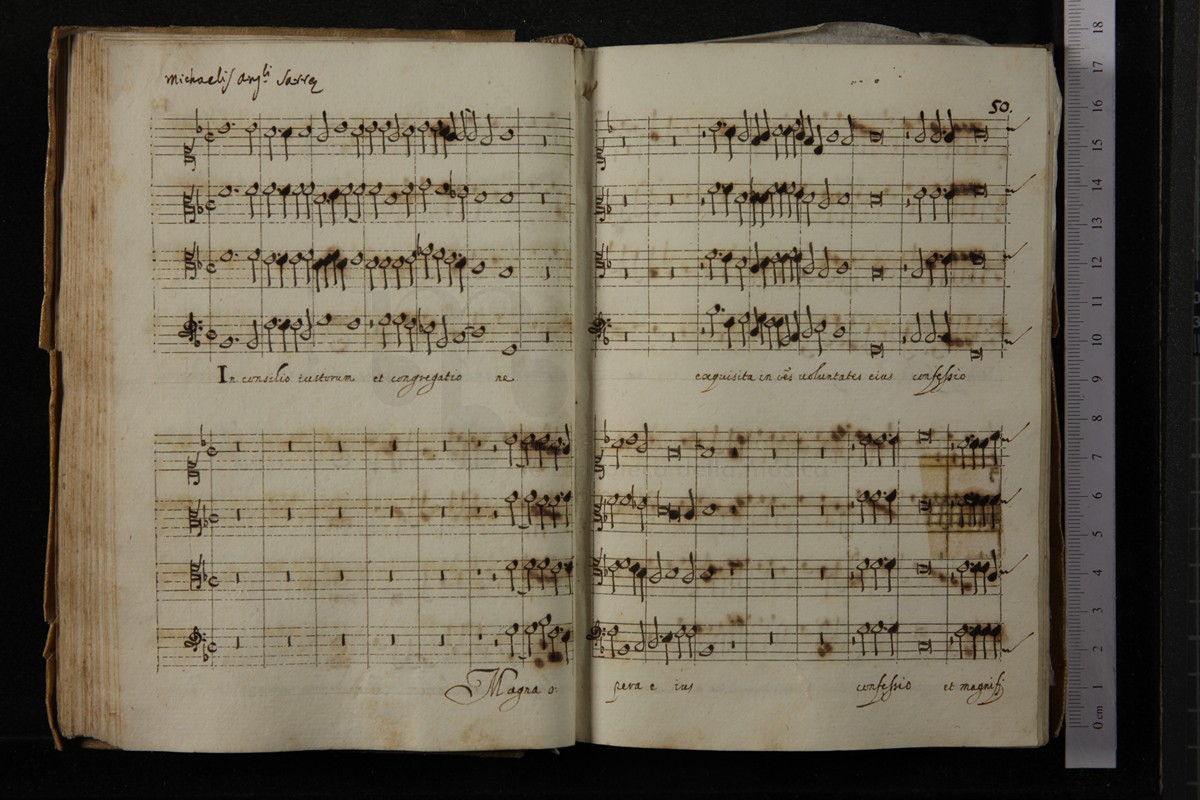 Michaelis Angli
50.
In consilio iustorum et congregatio ne
exquisita in oēs uoluntates eius confessio
Magna o-
pera e ius confessio et magnifi
18
17
16
15
14
13
12
11
10
9
8
7
6
5
4
3
2
1
0 cm